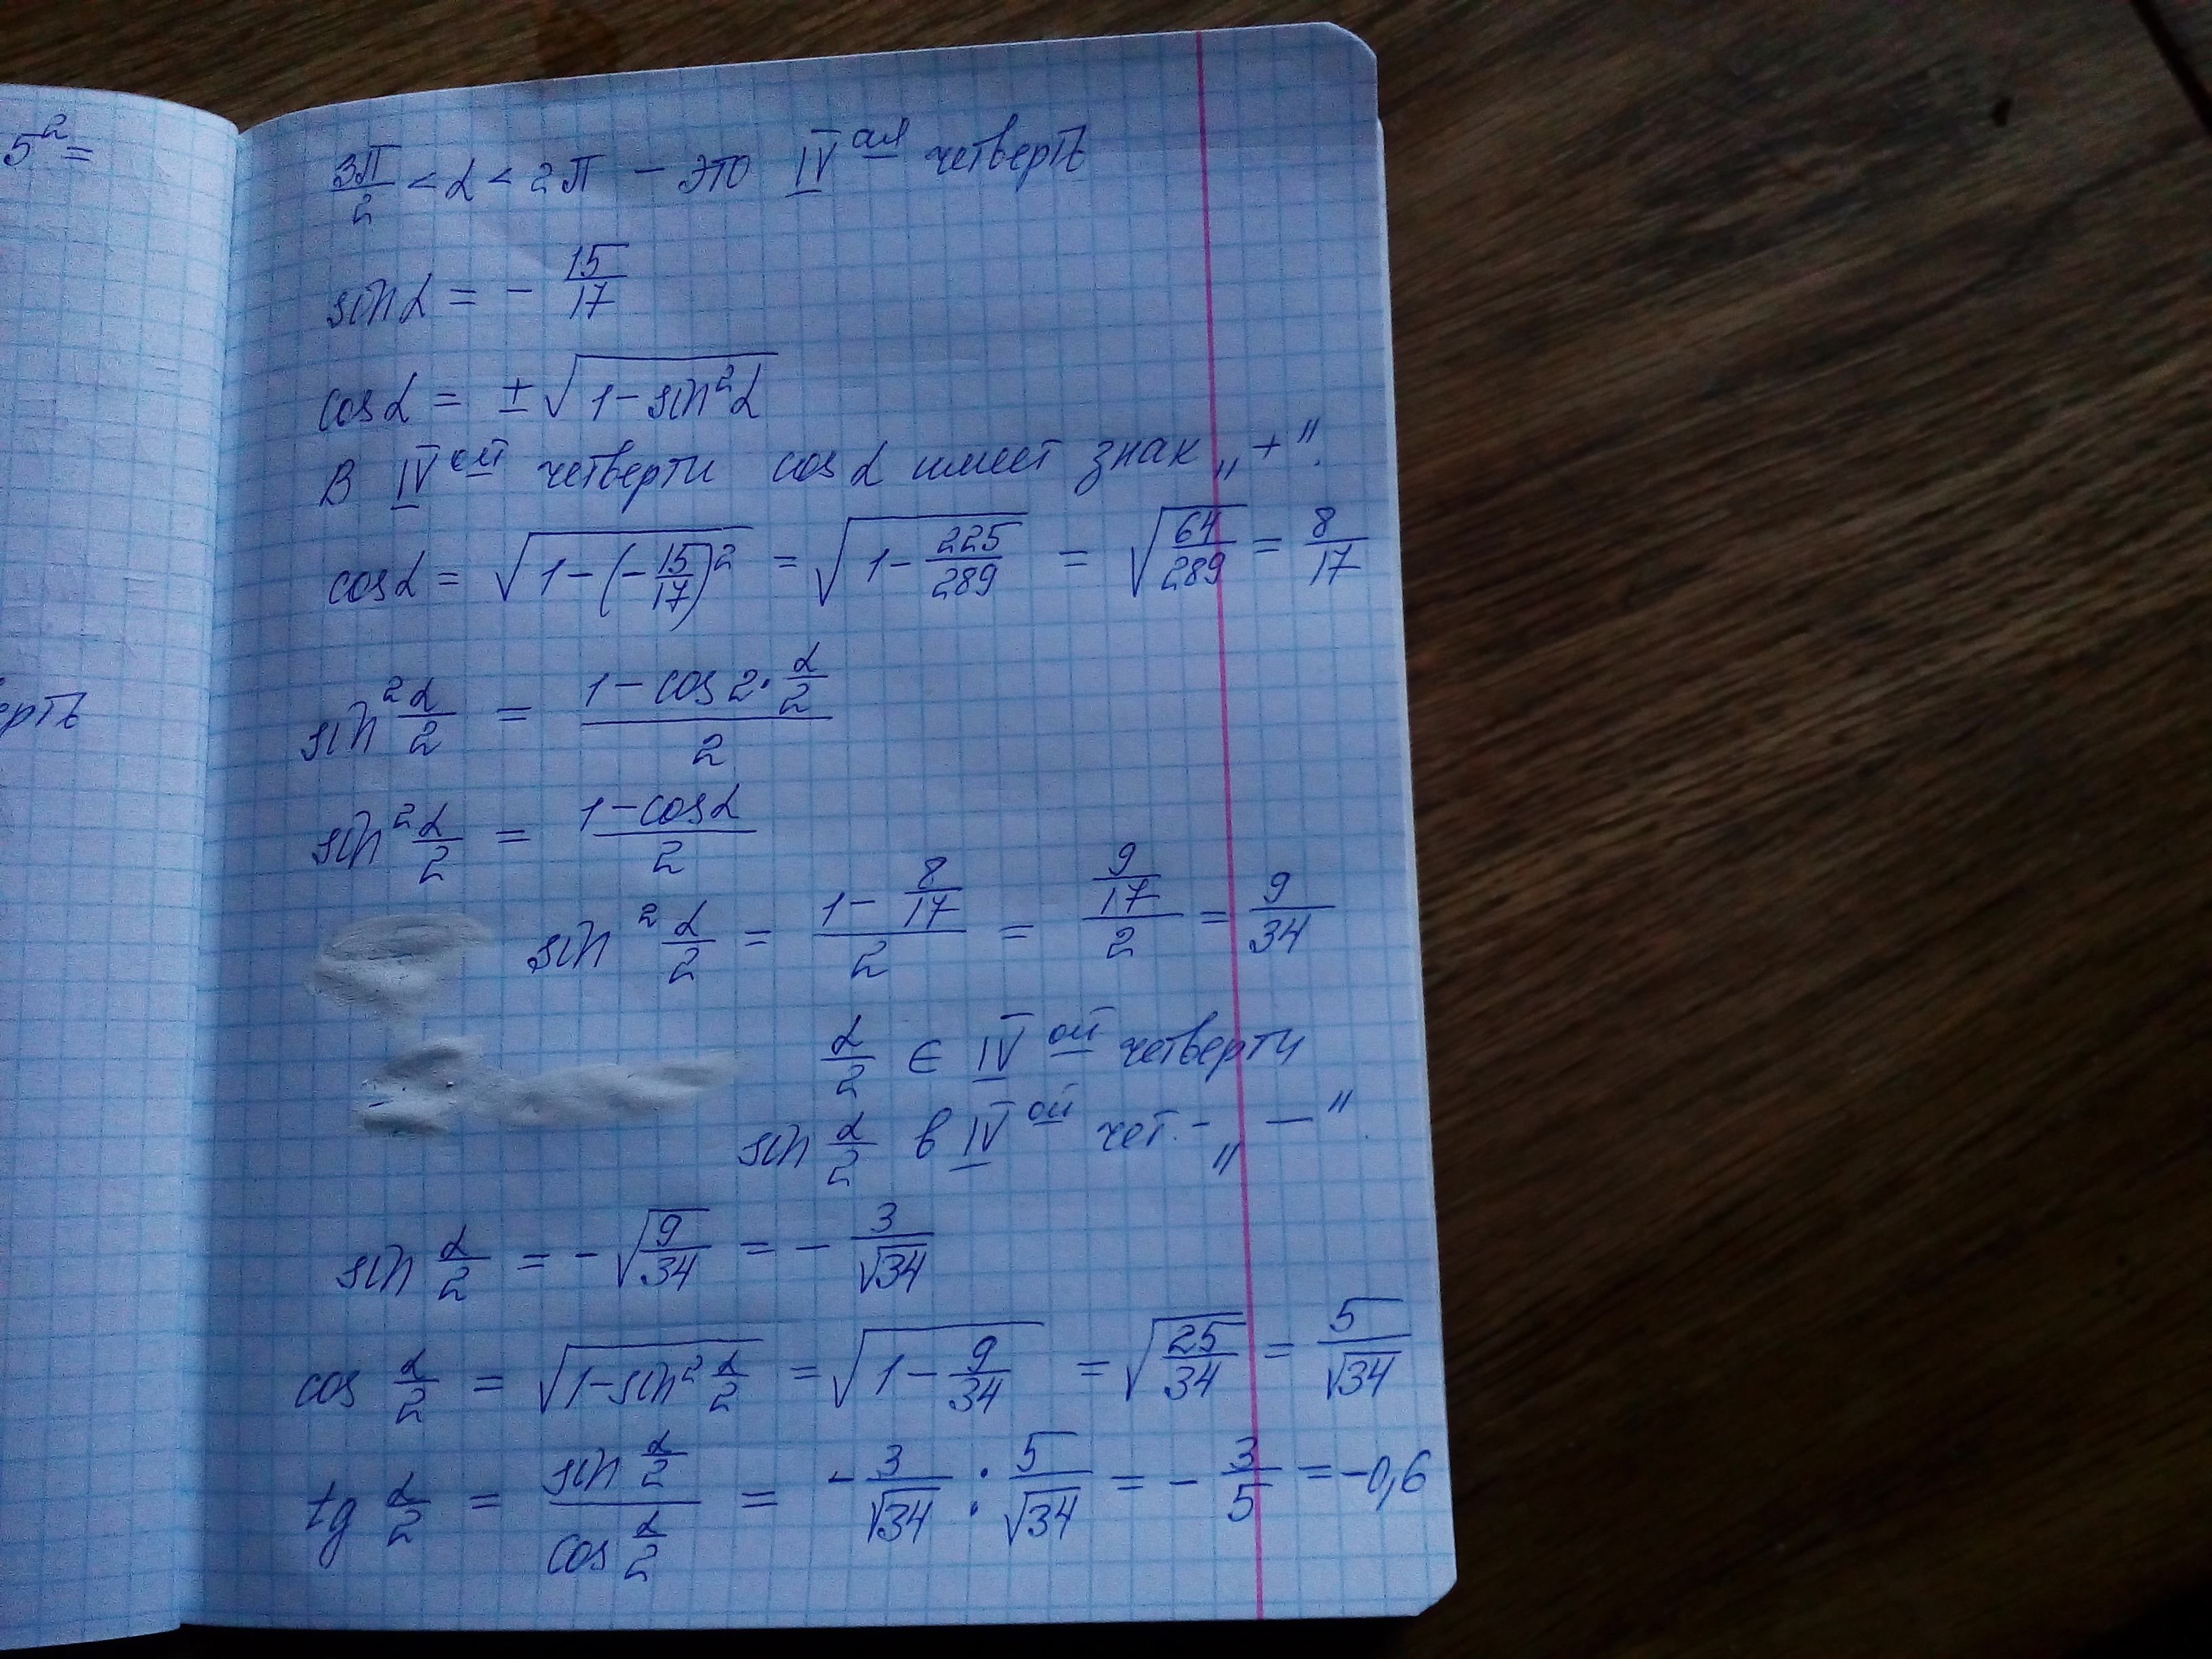 5² =
ерть
3π/2 < α < 2π – это IV ая четверть
sin α = - 15/17
cos α = ± √(1 - sin²α)
В IV ой четверти cos α имеет знак „+".
cos α = √(1 - (-15/17)²) = √(1 - 225/289) = √(64/289) = 8/17
sin² α/2 = (1 - cos 2·α/2)/2
sin² α/2 = (1 - cos α)/2
sin² α/2 = (1 - 8/17)/2 = (9/17)/2 = 9/34
α/2 ∈ IV ой четверти
sin α/2 в IV ой чет. - „—".
sin α/2 = - √(9/34) = - 3/√34
cos α/2 = √(1 - sin² α/2) = √(1 - 9/34) = √(25/34) = 5/√34
tg α/2 = (sin α/2)/(cos α/2) = - 3/√34 : 5/√34 = - 3/5 = -0,6